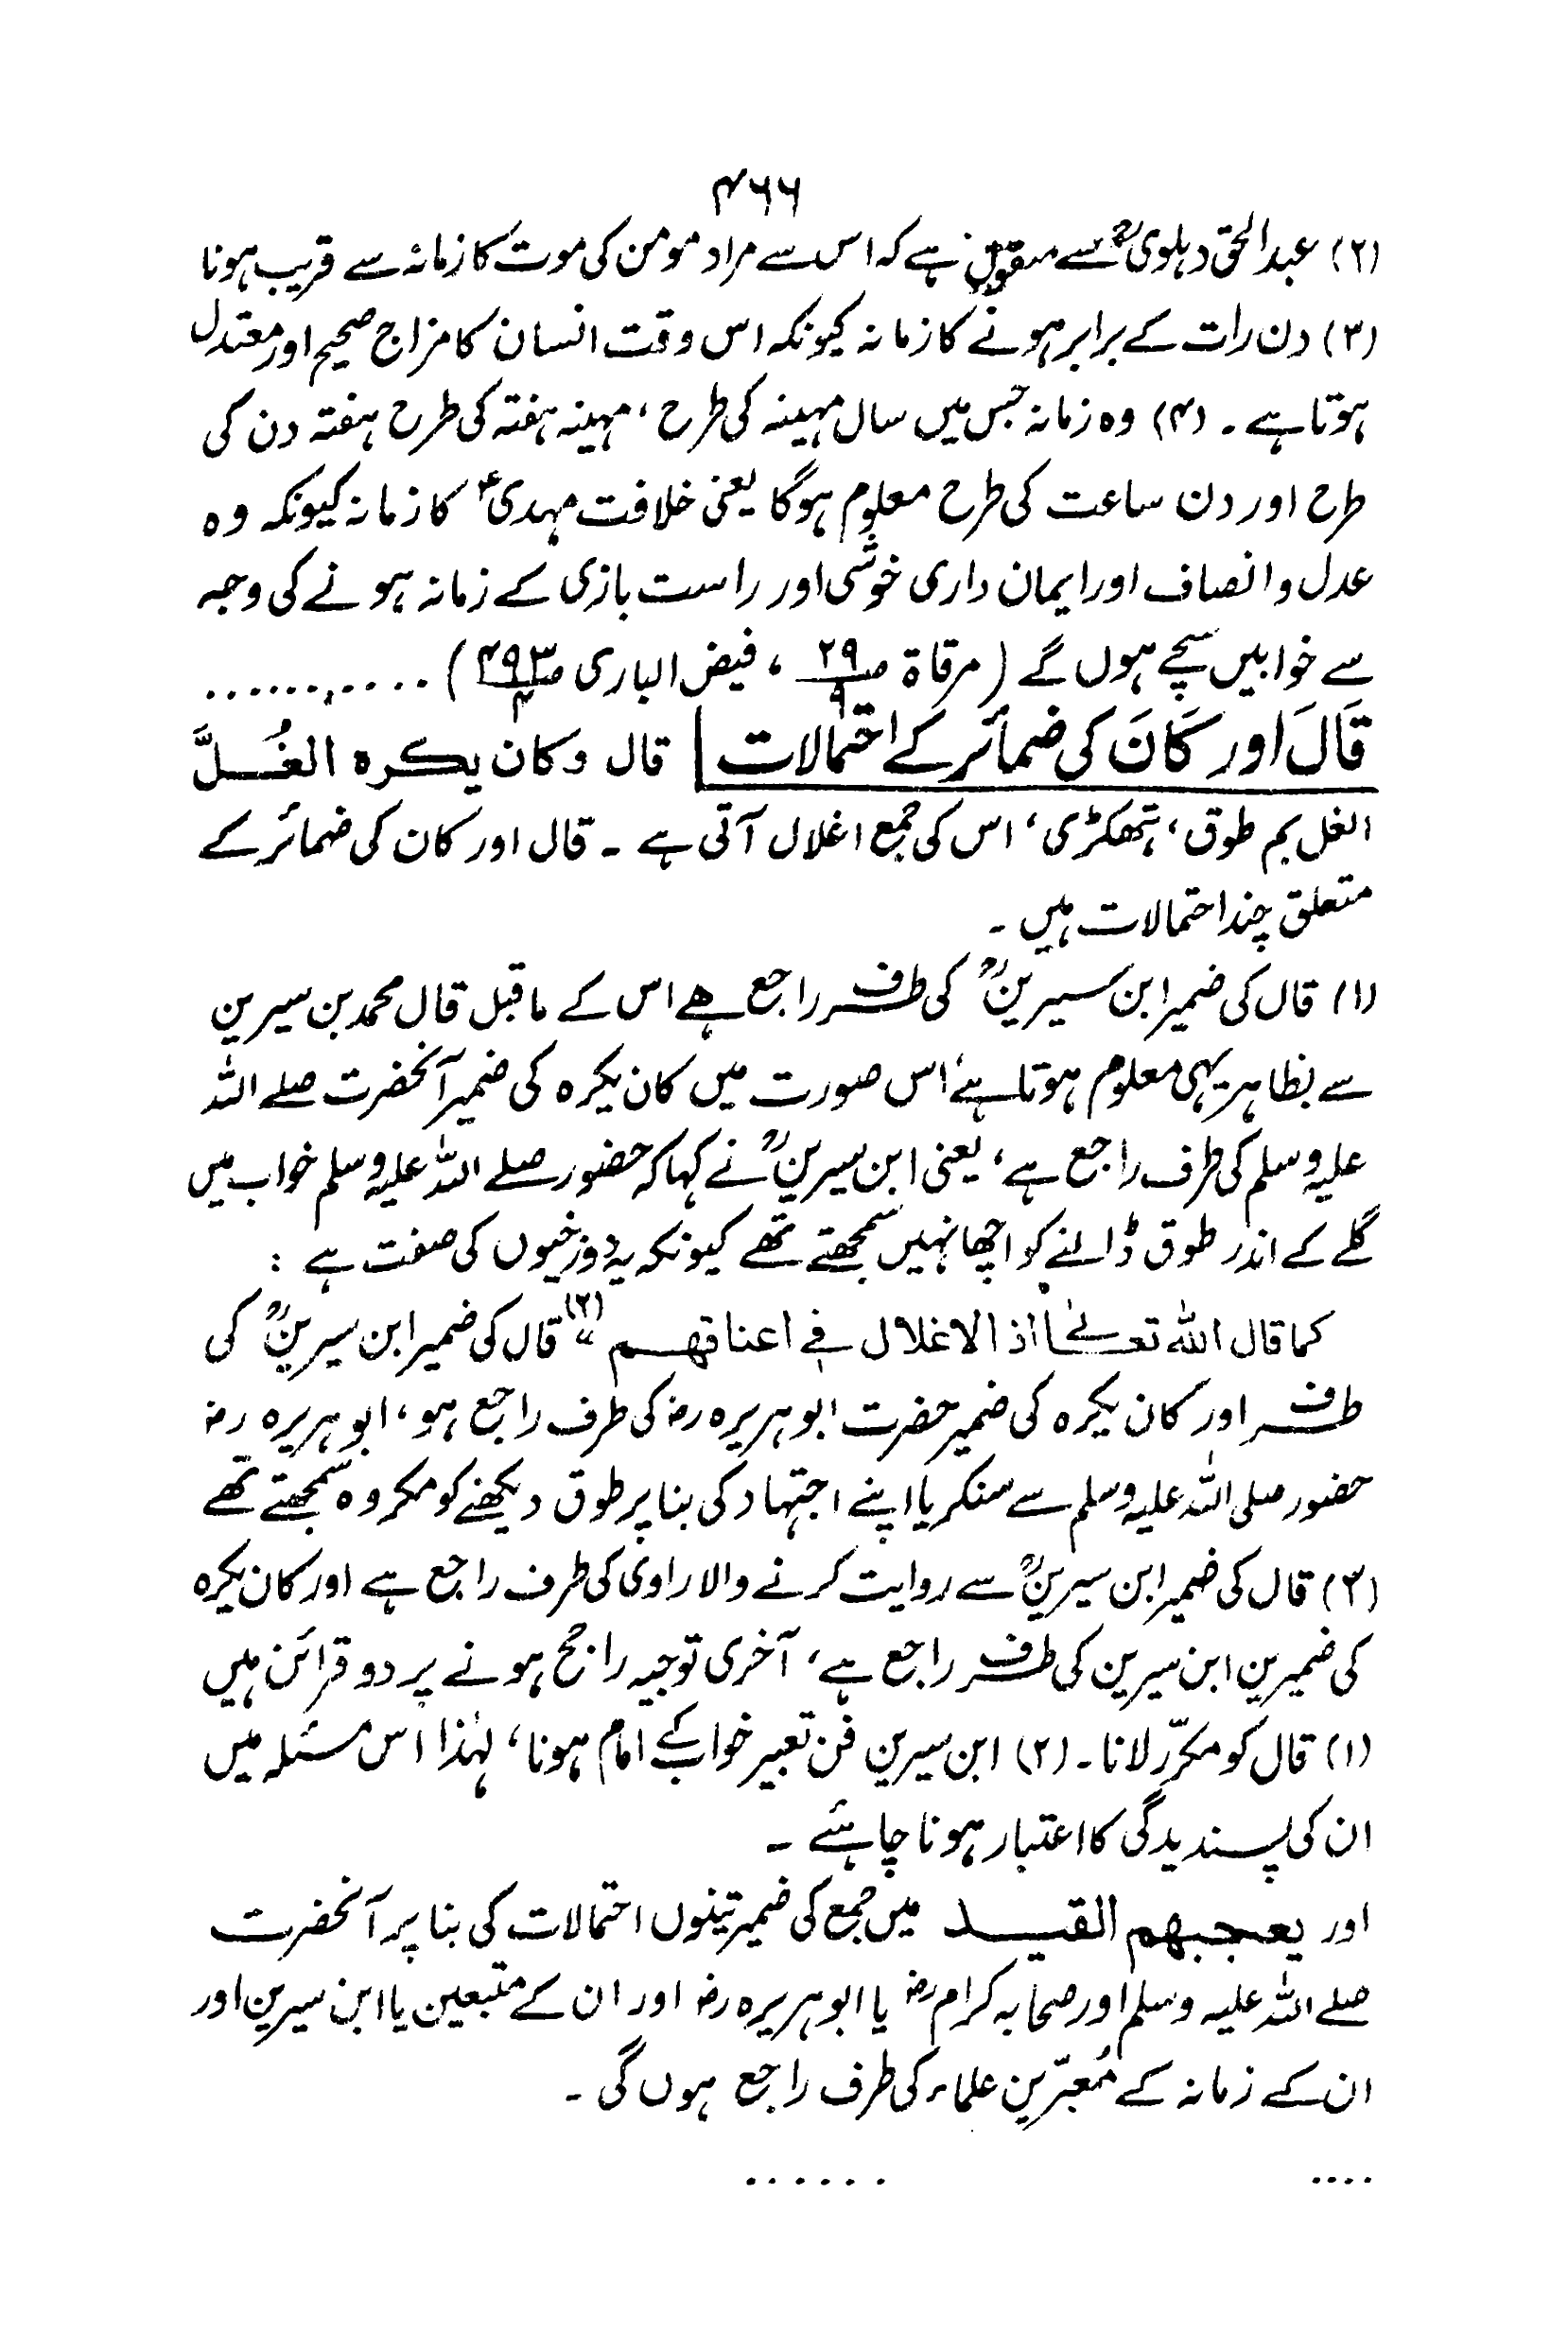 ۴۶۶
(۲) عبدالحق دہلویؒ سے منقول ہے کہ اس سے مراد مومن کی موت کا زمانہ سے قریب ہونا
(۳) دن رات کے برابر ہونے کا زمانہ کیونکہ اس وقت انسان کا مزاج صحیح اور معتدل
ہوتا ہے ۔ (۴) وہ زمانہ جس میں سال مہینہ کی طرح ، مہینہ ہفتہ کی طرح ہفتہ دن کی
طرح اور دن ساعت کی طرح معلوم ہوگا یعنی خلافت مہدیؑ کا زمانہ کیونکہ وہ
عدل و انصاف اور ایمان داری خوشی اور راست بازی کے زمانہ ہونے کی وجہ
سے خوابیں سچے ہوں گے (مرقاة ص۲۹/۹ ، فیض الباری ص۴۹۳/۴) ............
قَالَ اور کَانَ کی ضمائر کے احتمالات | قال وكان يكره الغُلَّ
الغل بم طوق ، ہتھکڑی ، اس کی جمع اغلال آتی ہے ۔ قال اور کان کی ضمائر کے
متعلق چند احتمالات ہیں ۔
(۱) قال کی ضمیر ابن سیرینؒ کی طرف راجع ہے اس کے ماقبل قال محمد بن سیرین
سے بظاہر یہی معلوم ہوتا ہے ، اس صورت میں کان یکرہ کی ضمیر آنحضرت صلے اللہ
علیہ وسلم کی طرف راجع ہے ، یعنی ابن سیرینؒ نے کہا کہ حضور صلے اللہ علیہ وسلم خواب میں
گلے کے اندر طوق ڈالنے کو اچھا نہیں سمجھتے تھے کیونکہ یہ دوزخیوں کی صفت ہے :
کما قال اللہ تعالےٰ اذ الاغلال فے اعناقهم " (۲) قال کی ضمیر ابن سیرینؒ کی
طرف اور کان یکرہ کی ضمیر حضرت ابو ہریرہ رضؓ کی طرف راجع ہو ، ابو ہریرہ رضؓ
حضور صلی اللہ علیہ وسلم سے سنکر یا اپنے اجتہاد کی بنا پر طوق دیکھنے کو مکروہ سمجھتے تھے
(۳) قال کی ضمیر ابن سیرینؒ سے روایت کرنے والا راوی کی طرف راجع ہے اور کان یکرہ
کی ضمیرین ابن سیرین کی طرف راجع ہے ، آخری توجیہ راجح ہونے پر دو قرائن ہیں
(۱) قال کو مکرّر لانا ۔ (۲) ابن سیرین فن تعبیر خواب کے امام ہونا ، لہٰذا اس مسئلہ میں
ان کی پسندیدگی کا اعتبار ہونا چاہئے ۔
اور يعجبهم القيد میں جمع کی ضمیر تینوں احتمالات کی بنا پر آنحضرت
صلے اللہ علیہ وسلم اور صحابہ کرام رضؓ یا ابو ہریرہ رضؓ اور ان کے متبعین یا ابن سیرین اور
ان کے زمانہ کے مُعبّرین علماء کی طرف راجع ہوں گی ۔
.... ......